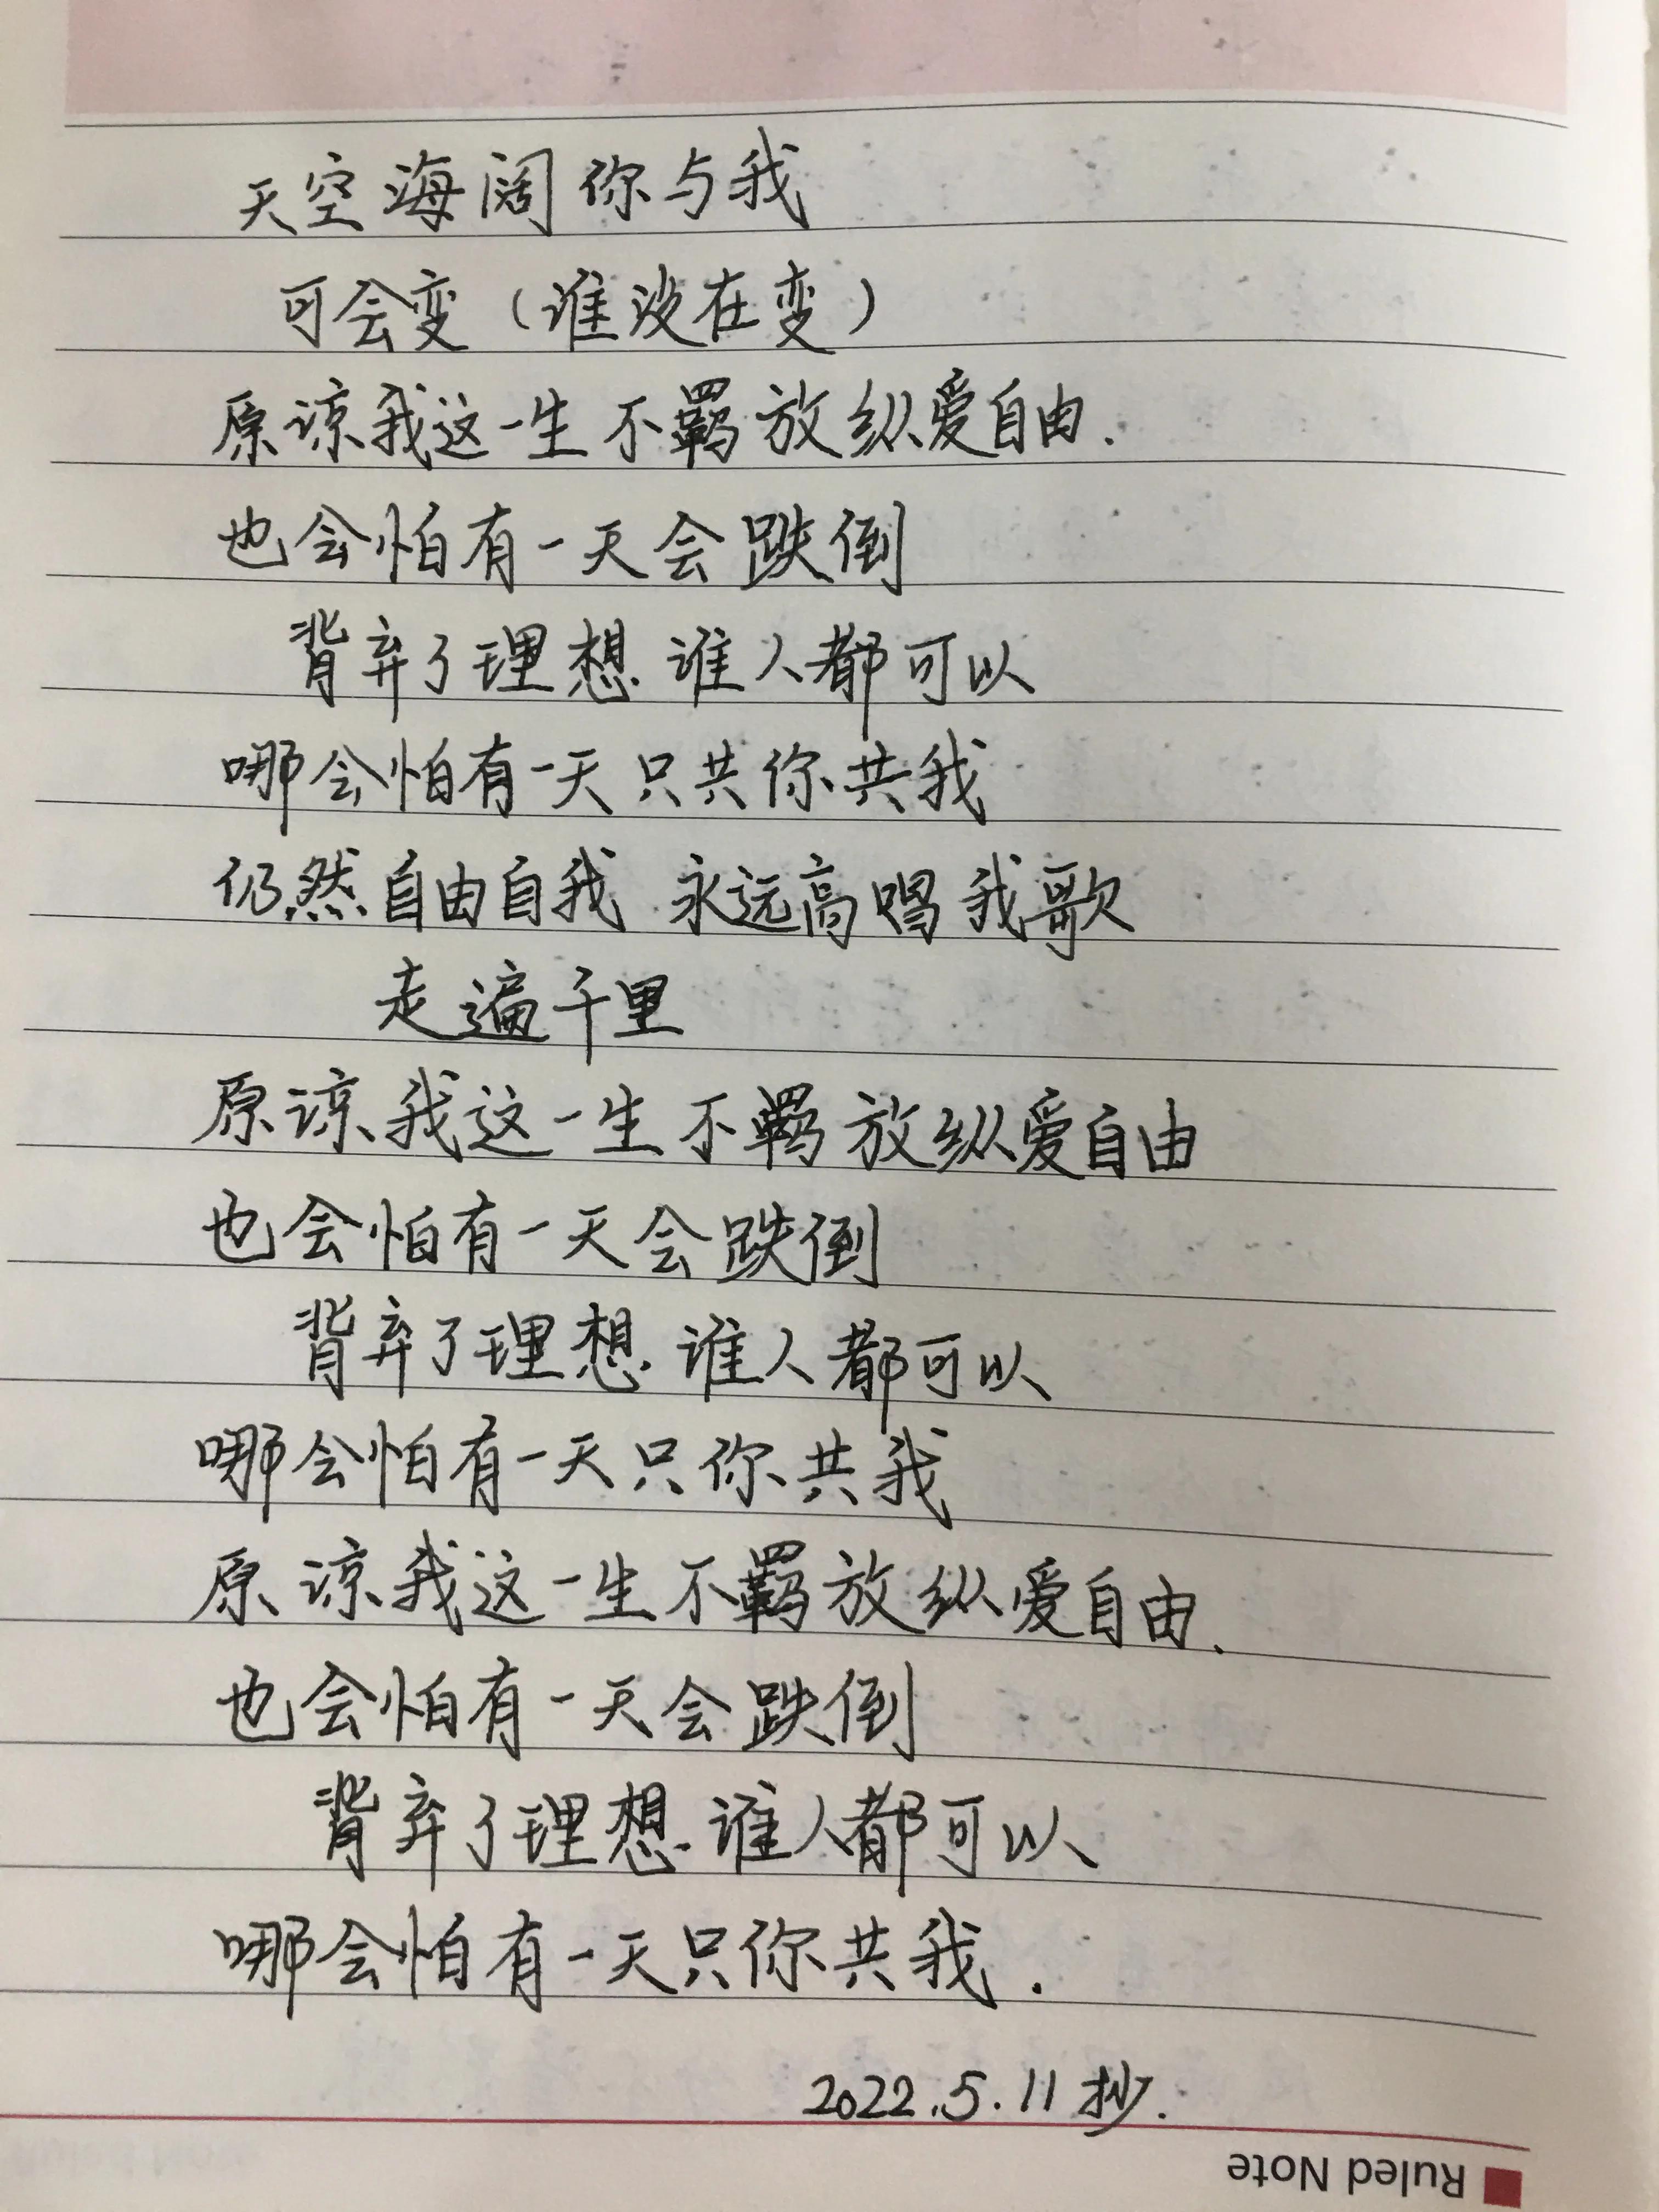 天空海阔你与我
可会变（谁没在变）
原谅我这一生不羁放纵爱自由.
也会怕有一天会跌倒
背弃了理想.谁人都可以
哪会怕有一天只共你共我
仍然自由自我 永远高唱我歌
走遍千里
原谅我这一生不羁放纵爱自由
也会怕有一天会跌倒
背弃了理想.谁人都可以
哪会怕有一天只你共我
原谅我这一生不羁放纵爱自由.
也会怕有一天会跌倒
背弃了理想.谁人都可以
哪会怕有一天只你共我.
2022.5.11抄.
Ruled Note